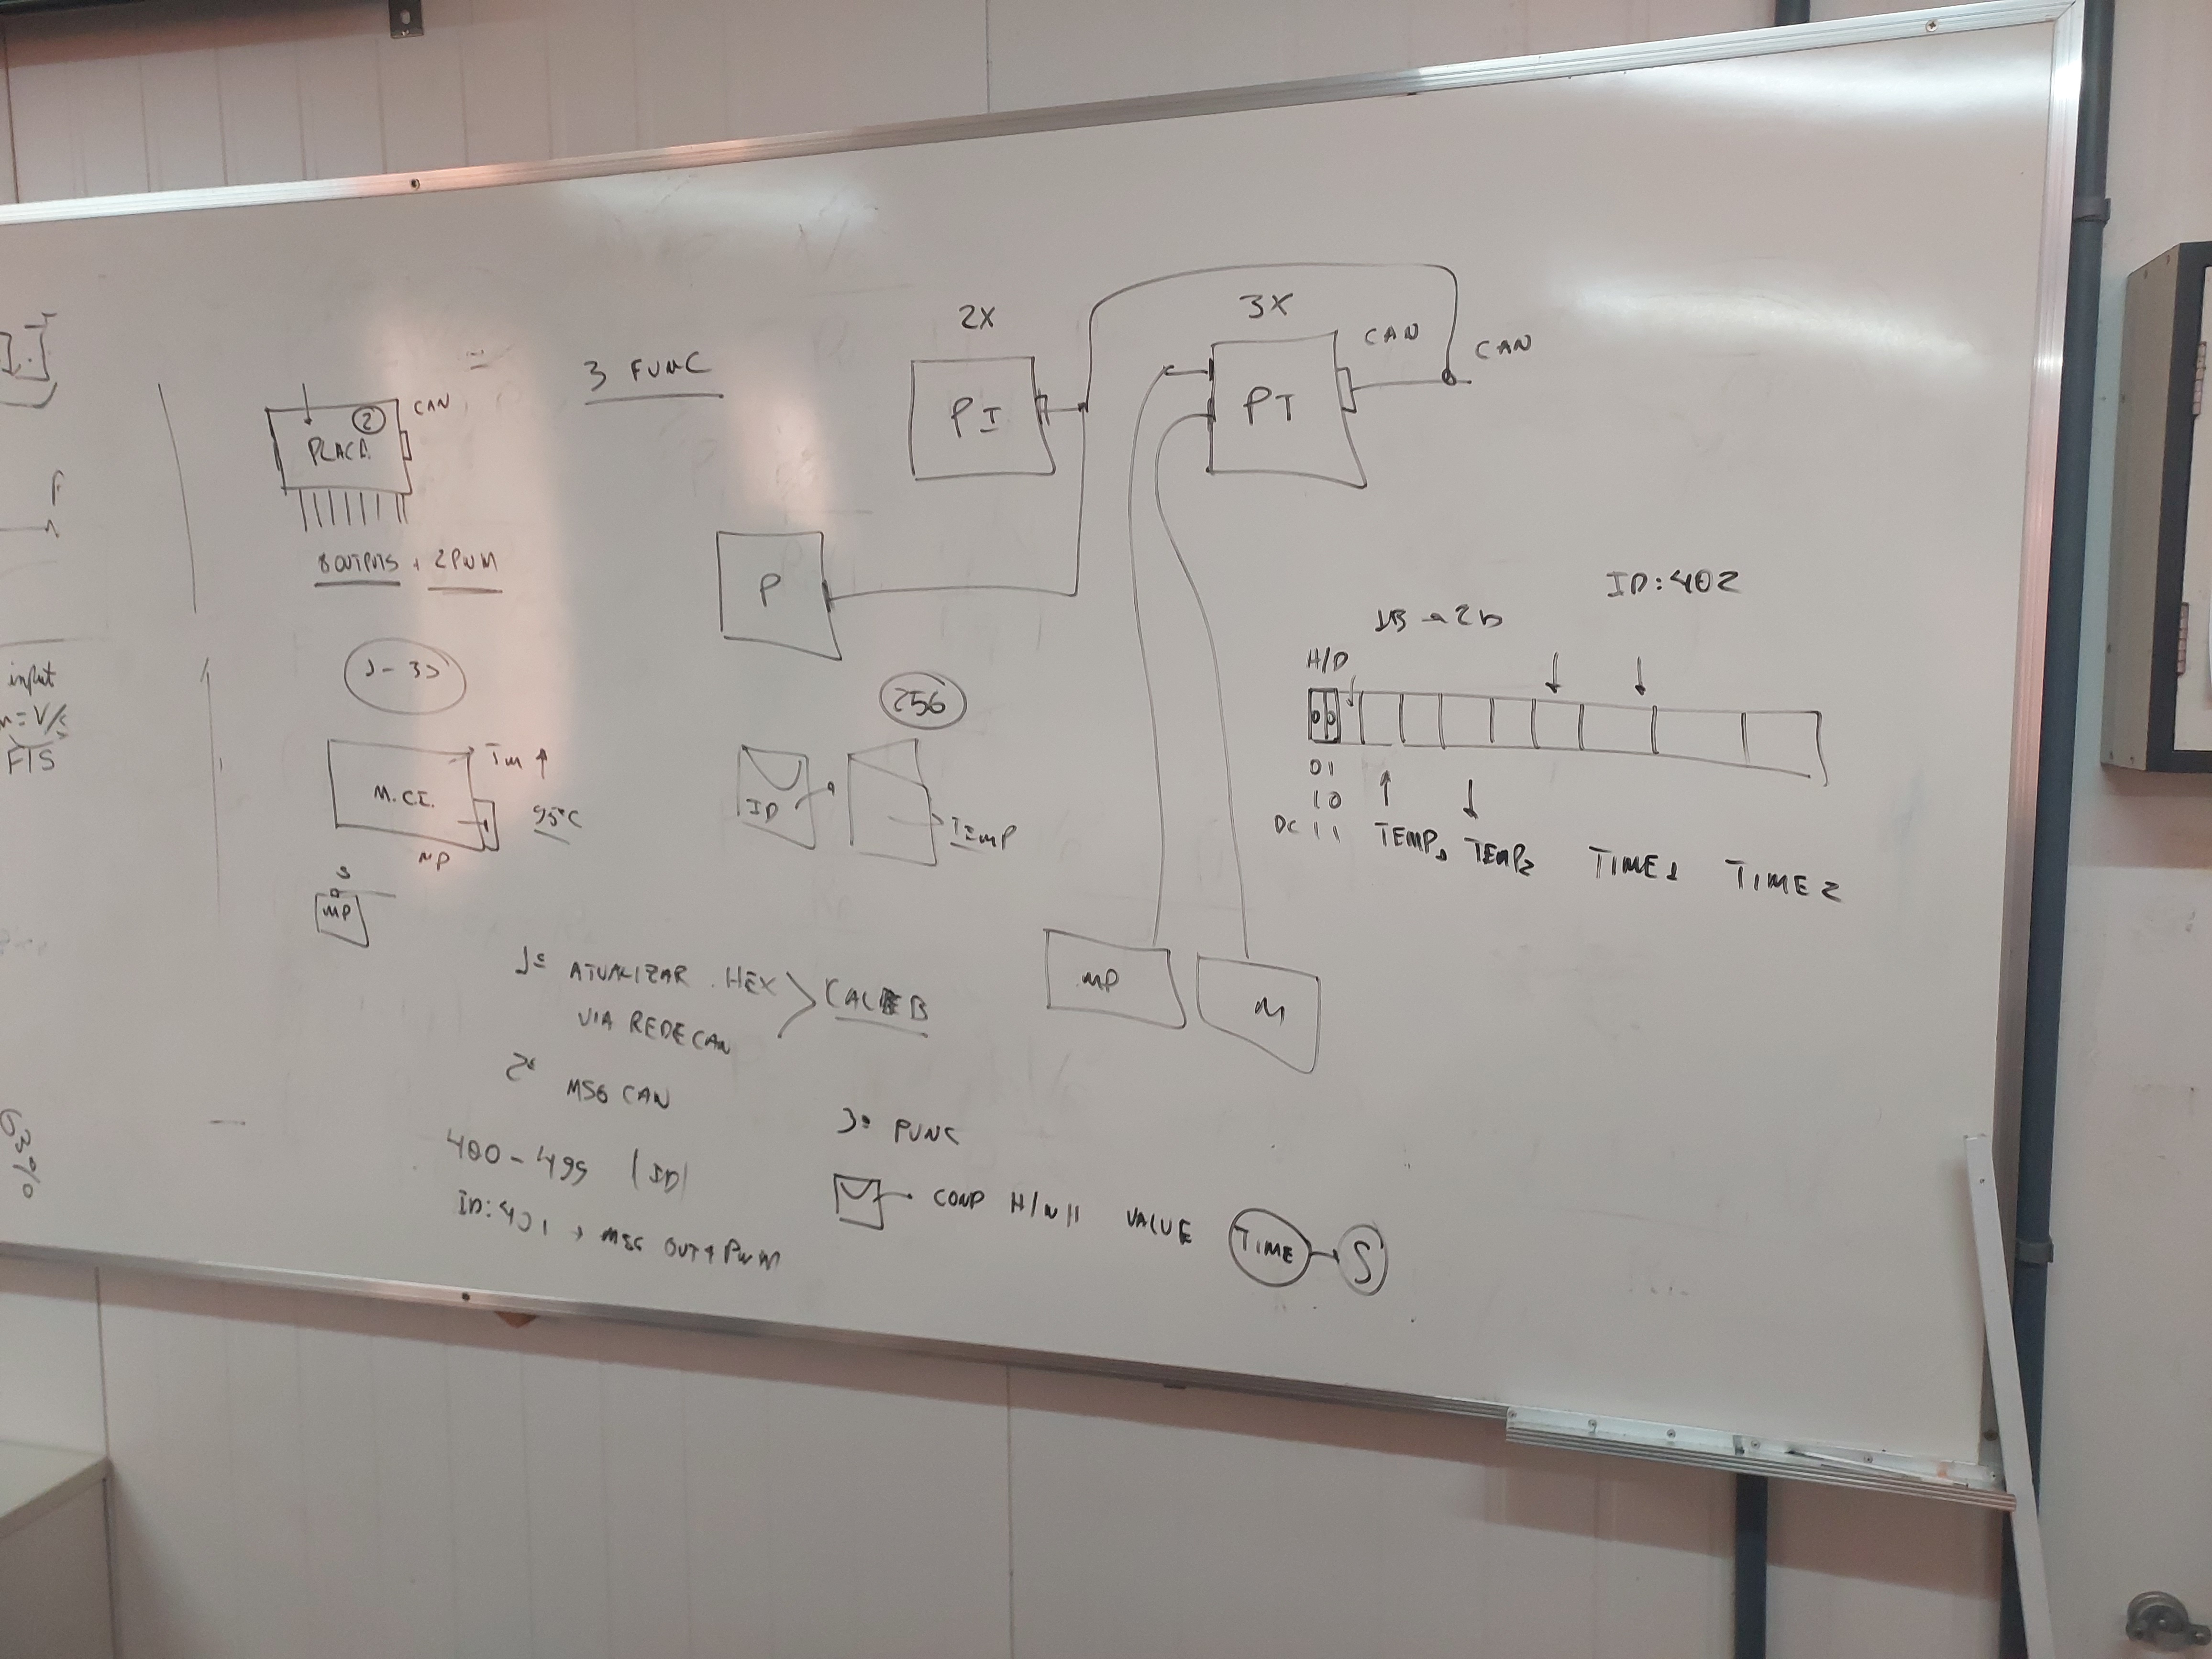 input
F/S
63%
PLACA
2
CAN
8 OUTPUTS + 2 PWM
M.CI.
Tm ↑
95°C
MP
S
MP
3 FUNC
2X
PI
3X
PT
CAN
CAN
P
256
ID
TEMP
MP
M
ID:402
1B → 2b
H/D
01
10
DC 11
TEMP1
TEMP2
TIME1
TIME2
1º ATUALIZAR .HEX
VIA REDE CAN
CALEB
2º MSG CAN
400-499 (ID)
ID:401 → MSG OUT + PWM
3º FUNC
COND H/
VALUE
TIME → S